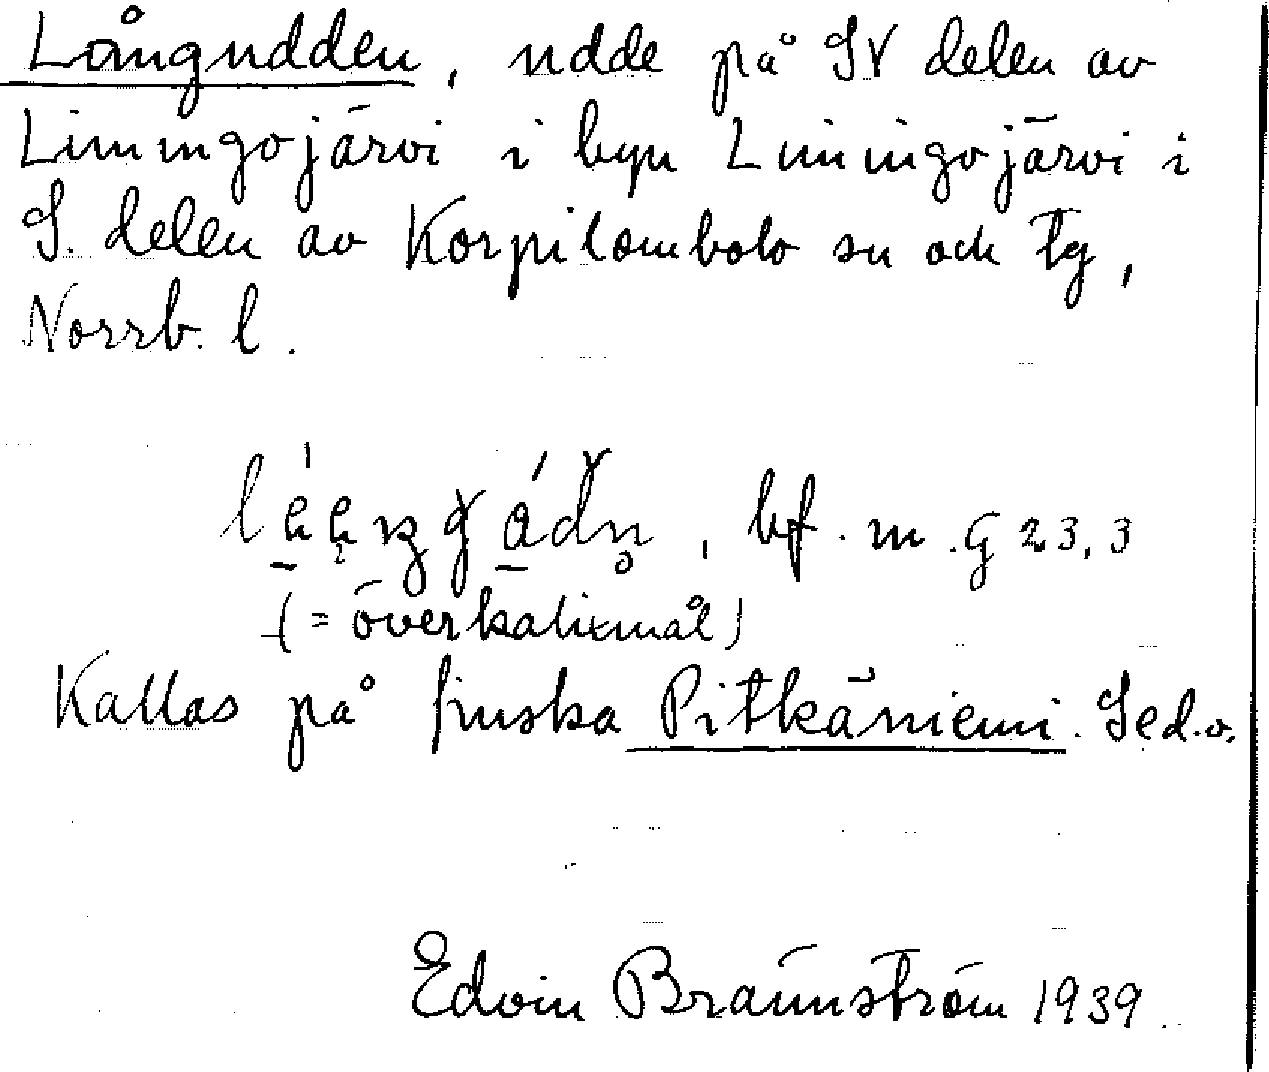 Långudden, udde på SV delen av
Limingojärvi i byn Limingojärvi i
S. delen av Korpilombolo sn och tg,
Norrb. l.
bf. m. G 23,3
(= överkalixmål)
Kallas på finska Pitkäniemi. Se d.o.
Edvin Brännström 1939